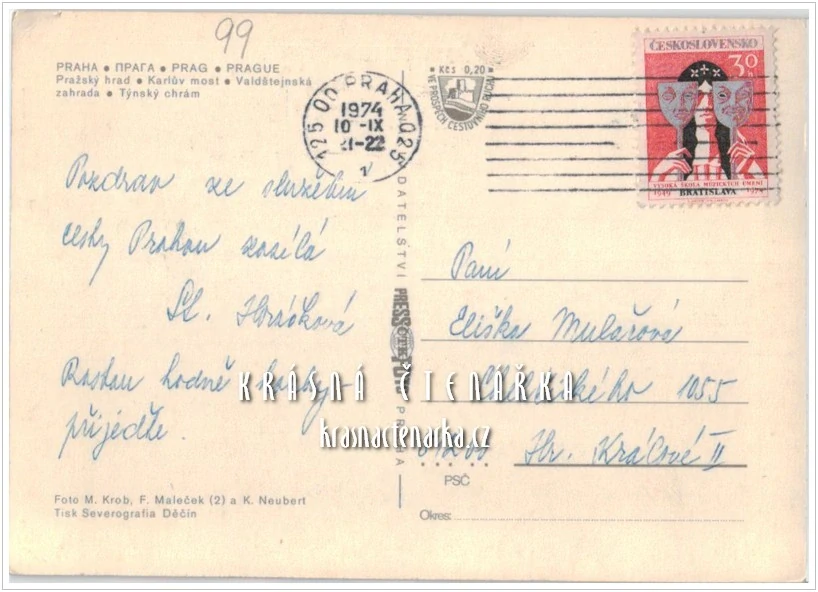 99
PRAHA ● ПРАГА ● PRAG ● PRAGUE
Pražský hrad ● Karlův most ● Valdštejnská
zahrada ● Týnský chrám
Pozdrav ze služební
cesty Prahou zasílá
St. Horáková
Rostou hodně houby
přijeďte.
Foto M. Krob, F. Maleček (2) a K. Neubert
Tisk Severografia Děčín
125 00 PRAHA 025
1974
10-IX
21-22
1
Kčs 0,20
VE PROSPĚCH CESTOVNÍHO RUCHU
ČESKOSLOVENSKO
30
VYSOKÁ ŠKOLA MÚZICKÝCH UMENÍ
1949 BRATISLAVA 1974
VYDAVATELSTVÍ PRESSFOTO PRAHA
Paní
Eliška Mulařová
1055
Hr. Králové II
PSČ
Okres:
KRÁSNÁ ČTENÁŘKA
krasnactenarka.cz